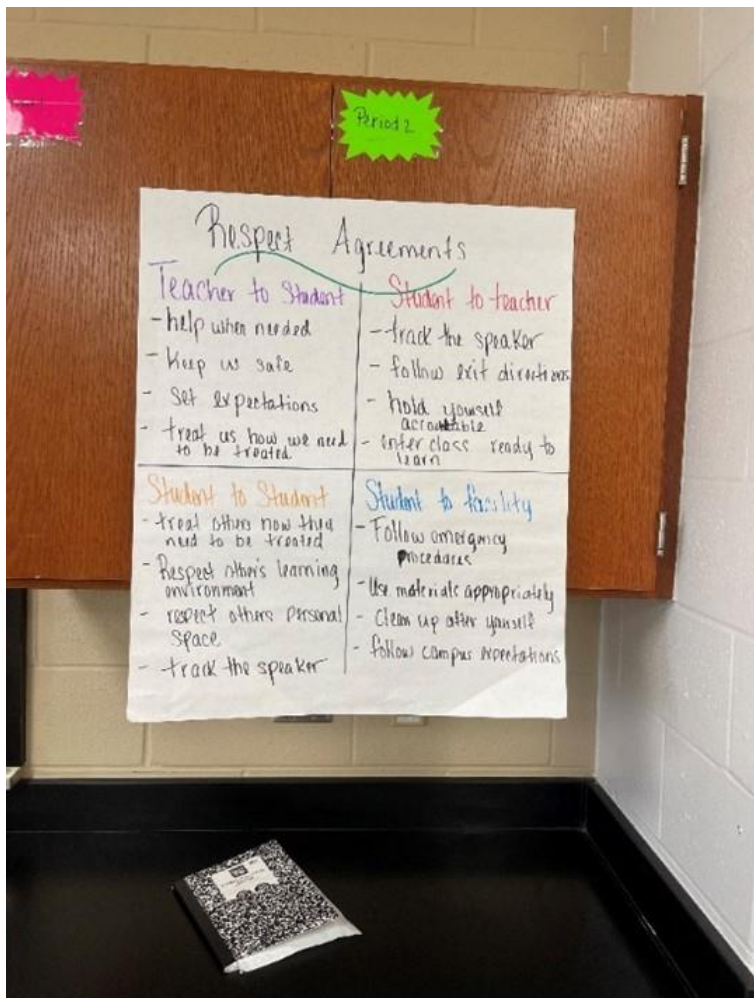 Period 2
Respect Agreements
Teacher to Student
- help when needed
- Keep us safe
- Set expectations
- treat us how we need
to be treated
Student to teacher
- track the speaker
- follow exit directions
- hold yourself
accountable
- enter class ready to
learn
Student to Student
- treat others how they
need to be treated
- Respect other's learning
environment
- respect others personal
space
- track the speaker
Student to facility
- Follow emergency
procedures
- Use materials appropriately
- Clean up after yourself
- follow campus expectations